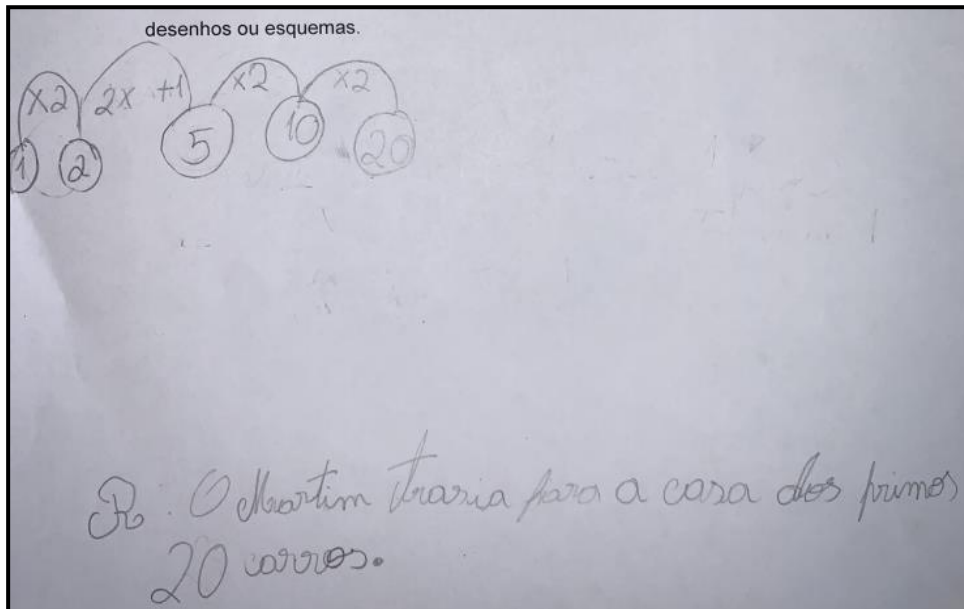 desenhos ou esquemas.
x2 2x +1 x2 x2
1 2 5 10 20
R. O Martim traria para a casa dos primos
20 carros.